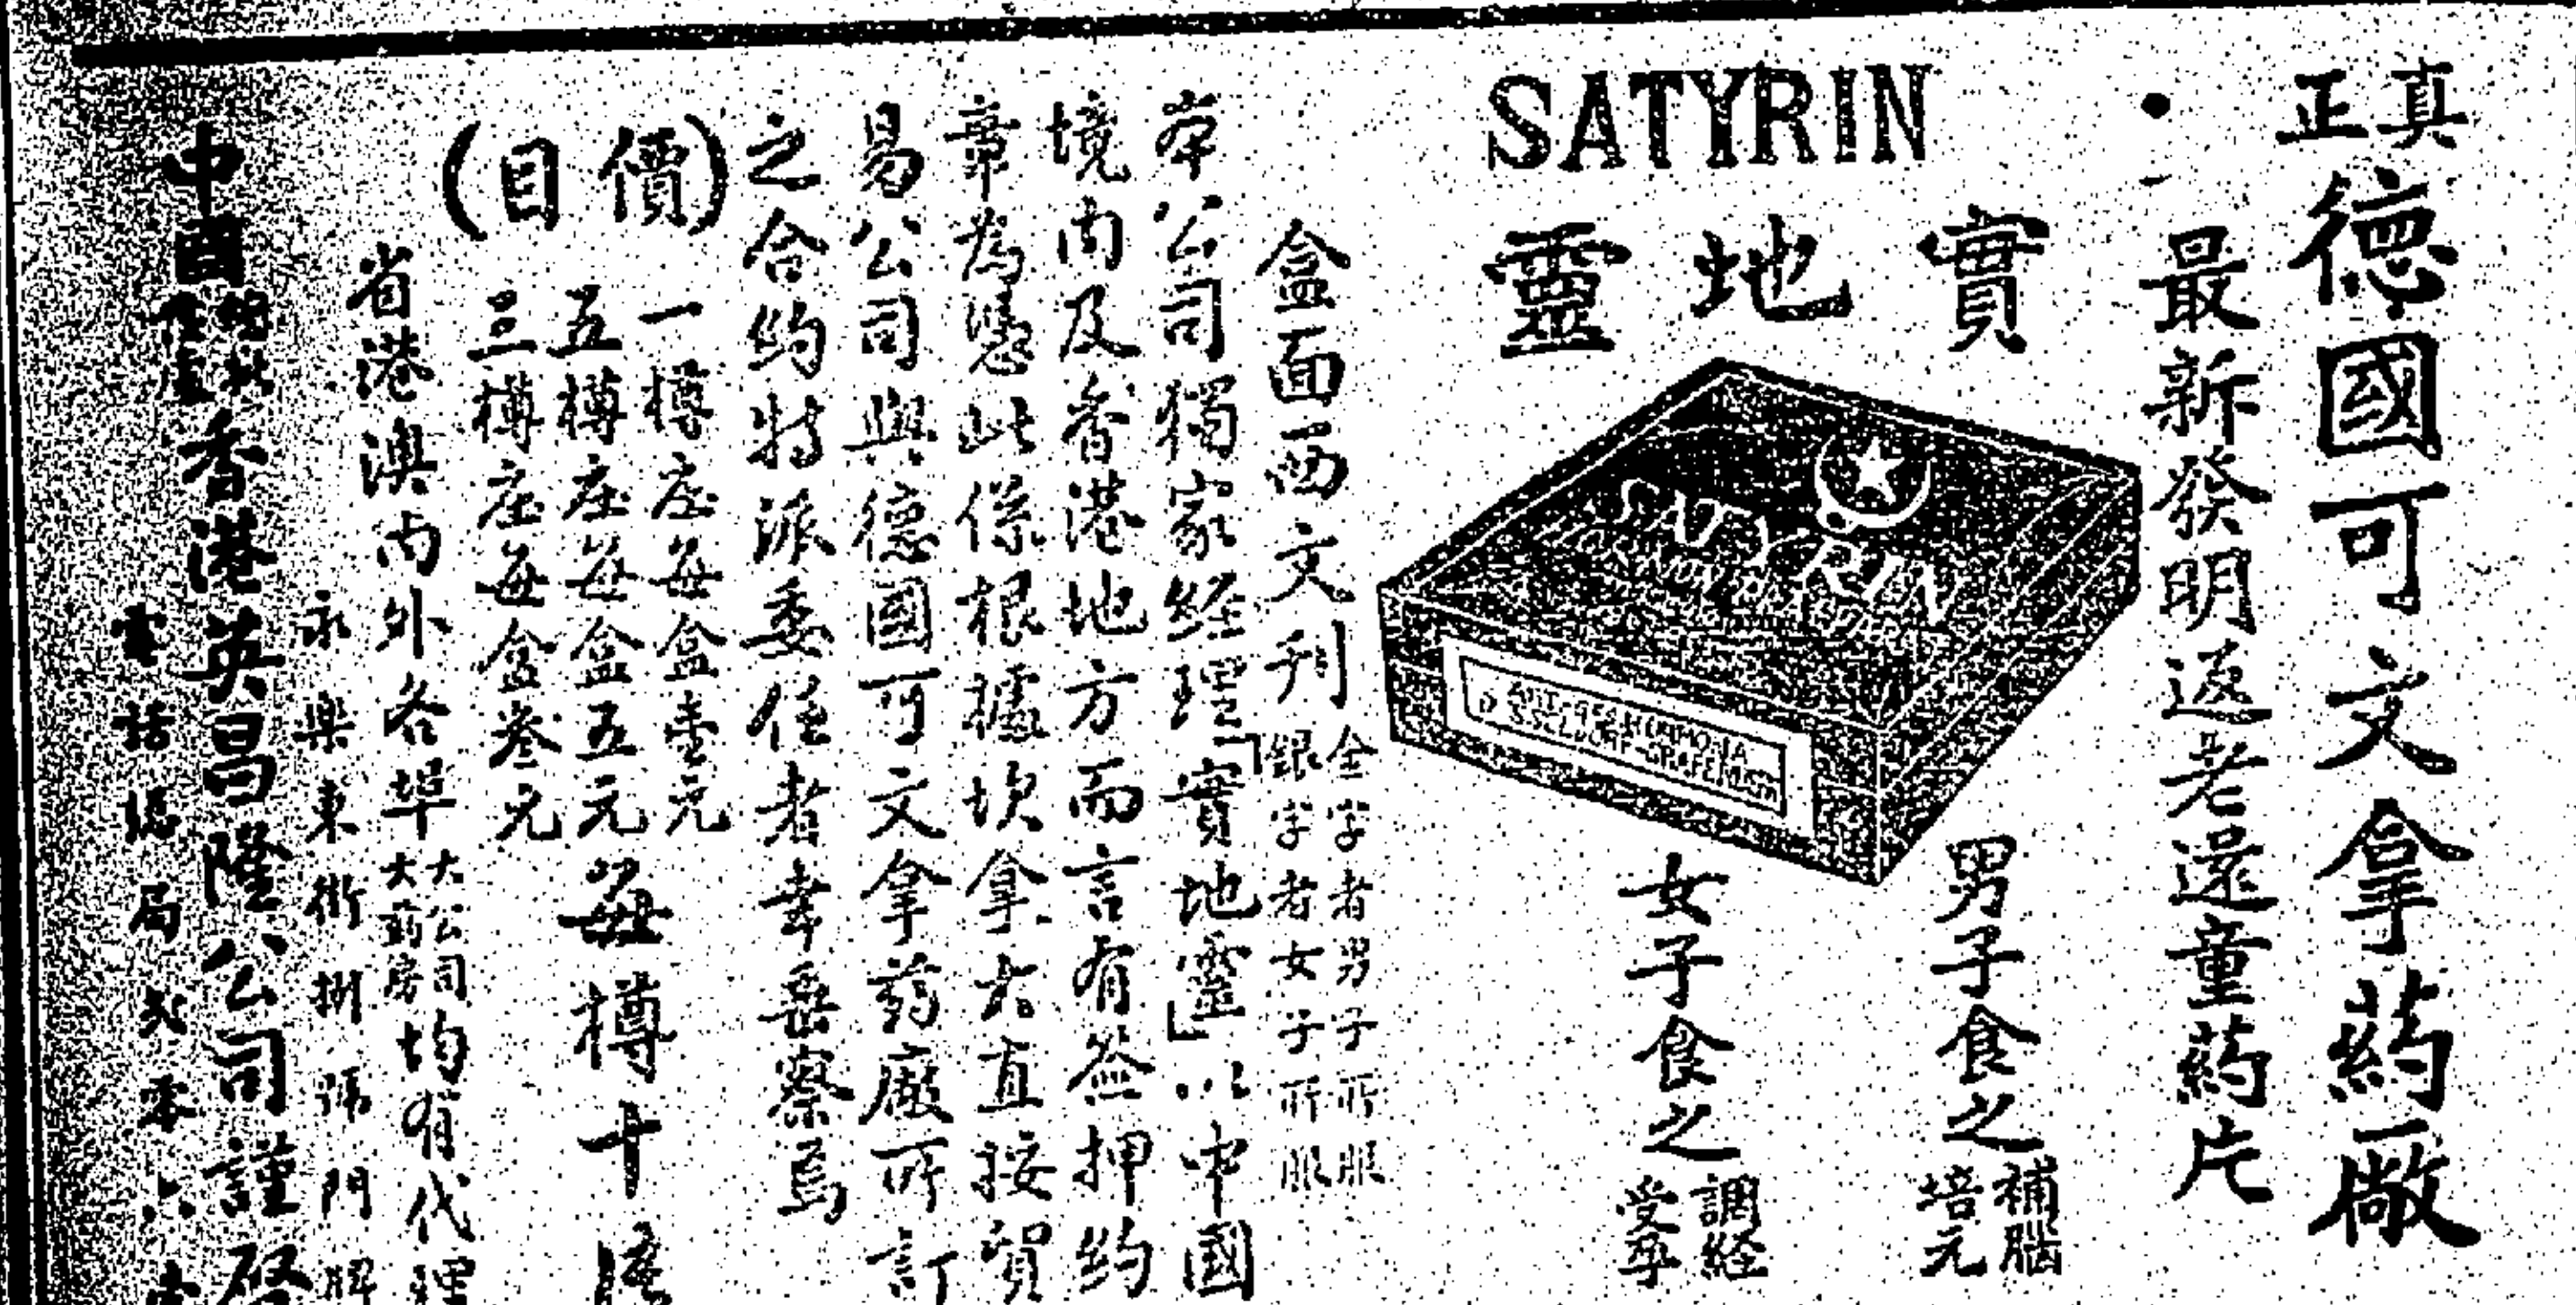 真正
德國可文拿药廠
最新發明返老還童药片
SATYRIN
實地靈
SATYRIN
男子食之
補腦
培元
女子食之
調經
受孕
盒面西文刋
金字者男子所服
銀字者女子所服
本公司獨家經理「實地靈」以中國
境內及香港地方而言有簽押約
章為憑此係根據坎拿大直接貿
易公司與德國可文拿药廠所訂
之合約特派委任者幸垂察焉
(價目)
一樽庄每盒壹元
五樽庄每盒五元
三樽庄每盒叁元
每樽十
省港澳內外各埠
大公司
大药房
均有代理
永樂東街捌號門牌
中國
香港英昌隆公司謹啓
電話總局